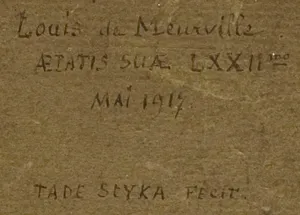 Louis de Meurville
ÆTATIS SUÆ LXXII
MAI 1917.
TADE STYKA FECIT.